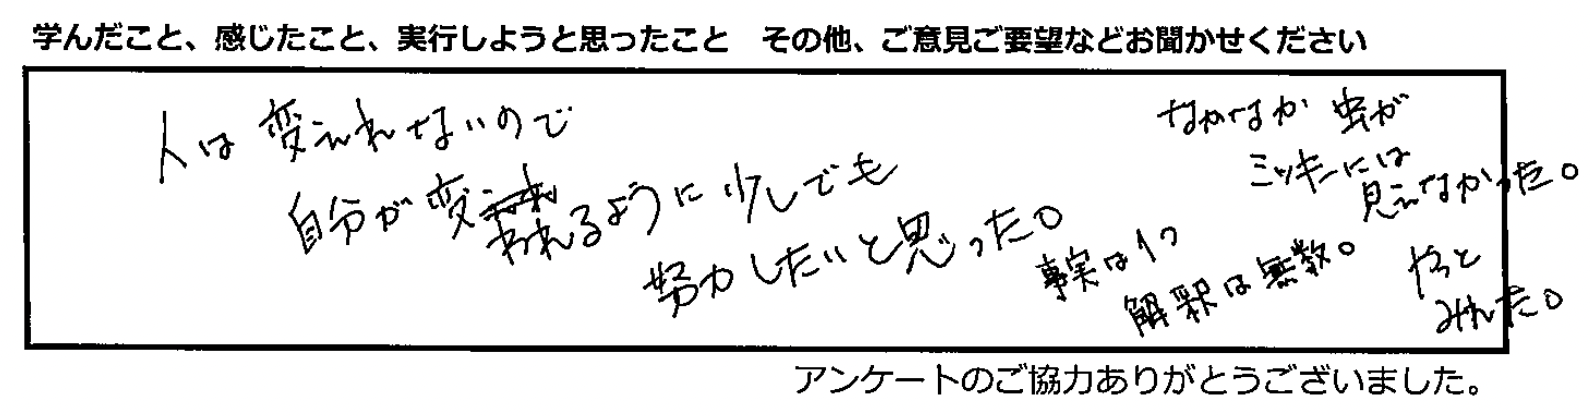 学んだこと、感じたこと、実行しようと思ったこと　その他、ご意見ご要望などお聞かせください
人は変えれないので
自分が変われるように少しでも
努力したいと思った。
事実は1つ
解釈は無数。
なかなか虫が
ミッキーには
見えなかった。
やっと
みれた。
アンケートのご協力ありがとうございました。